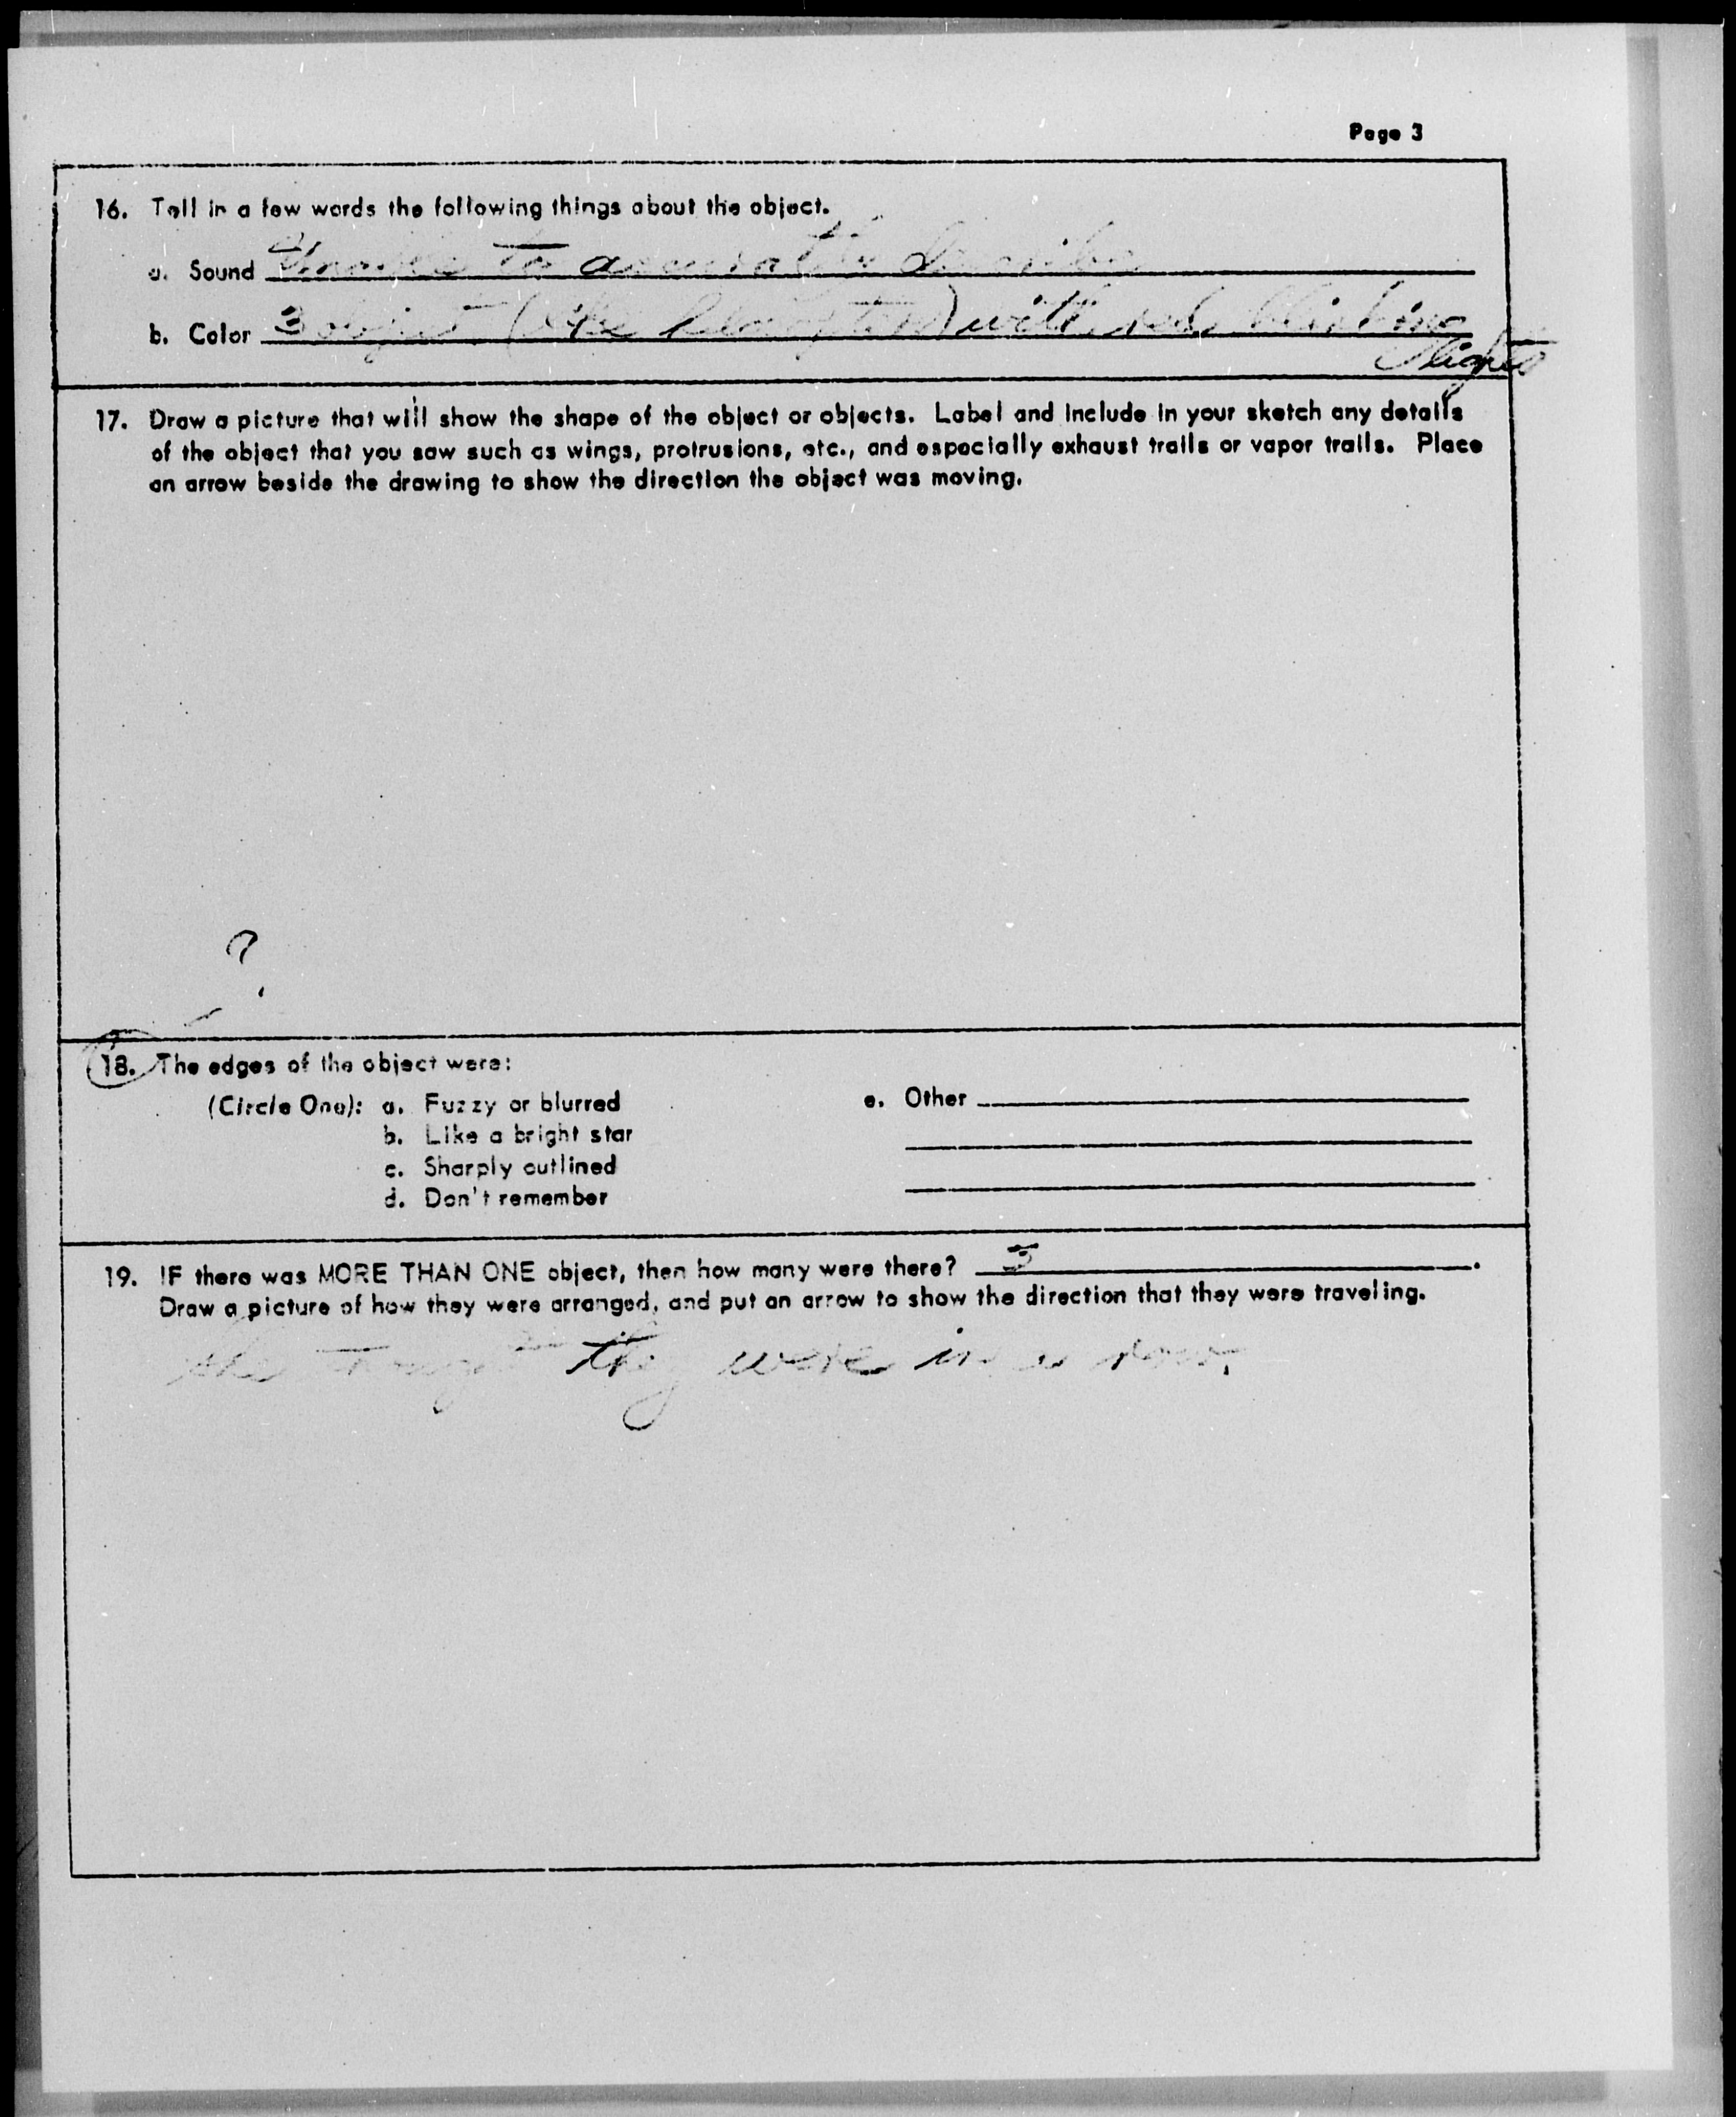 Page 3
16. Tell in a few words the following things about the object.
a. Sound Unable to accurately describe
b. Color 3 (like) with red blinking
lights
17. Draw a picture that will show the shape of the object or objects. Label and include in your sketch any details
of the object that you saw such as wings, protrusions, etc., and especially exhaust trails or vapor trails. Place
an arrow beside the drawing to show the direction the object was moving.
?
18. The edges of the object were:
(Circle One): a. Fuzzy or blurred
b. Like a bright star
c. Sharply outlined
d. Don't remember
e. Other
19. IF there was MORE THAN ONE object, then how many were there? 3.
Draw a picture of how they were arranged, and put an arrow to show the direction that they were traveling.
she thought they were in a row.